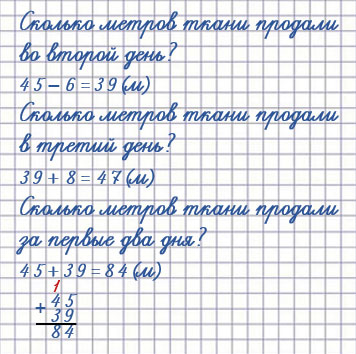 Сколько метров ткани продали
во второй день?
45 – 6 = 39 (м)
Сколько метров ткани продали
в третий день?
39 + 8 = 47 (м)
Сколько метров ткани продали
за первые два дня?
45 + 39 = 84 (м)
1
+ 45
39
84